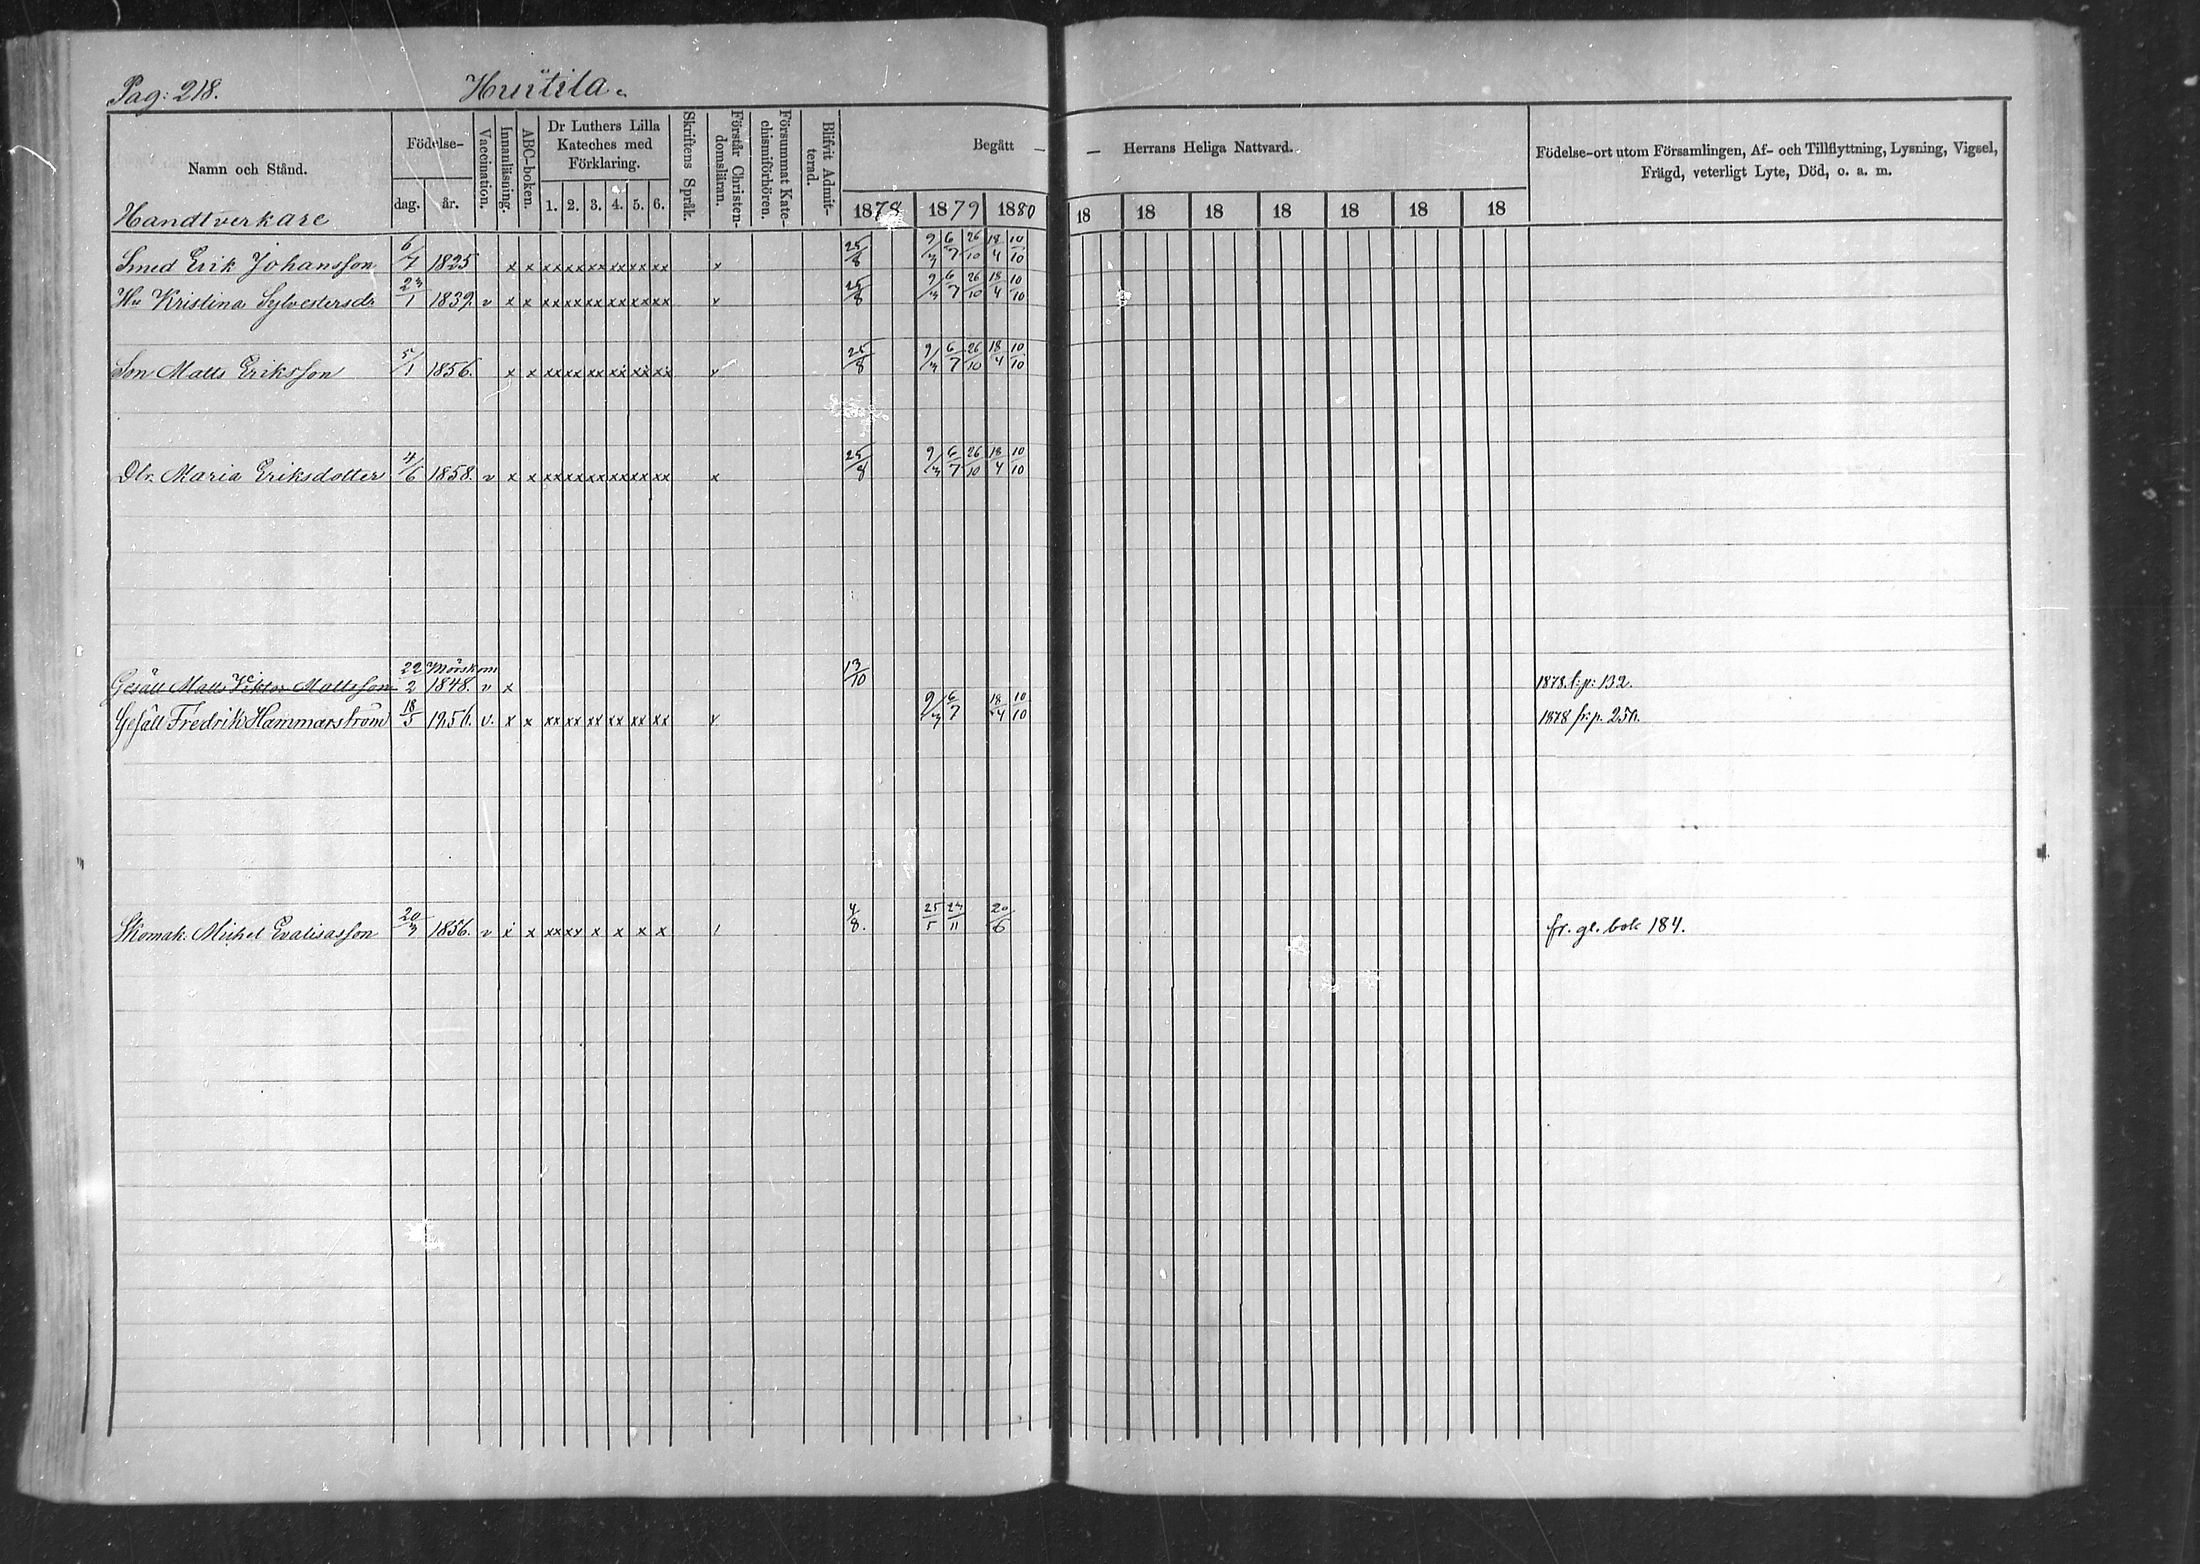 Pag: 218.
Huitila.
Namn och Stånd.
Födelse-
dag. år.
Vaccination.
Innanläsning.
ABC-boken.
Dr Luthers Lilla
Kateches med
Förklaring.
1. 2. 3. 4. 5. 6.
Skriftens Språk.
Förstår Christen-
domsläran.
Försummat Kate-
chismiförhören.
Blifvit Admit-
terad.
Begått — — Herrans Heliga Nattvard.
1878 1879 1880 18 18 18 18 18 18 18
Födelse-ort utom Församlingen, Af- och Tillflyttning, Lysning, Vigsel,
Frägd, veterligt Lyte, Död, o. a. m.
Handtverkare
Smed Erik Johansson 6/7 1825 x x xx xx xx xx xx xx x 25/8 9/3 6/7 26/10 18/4 10/10
Hu Kristina Sylvestersdr 23/1 1839. v x x xx xx xx xx xx xx x 25/8 9/3 6/7 26/10 18/4 10/10
Son Matts Eriksson 5/1 1856. x x xx xx xx xx xx xx x 25/8 9/3 6/7 26/10 18/4 10/10
Dtr. Maria Eriksdotter 4/6 1858. v x x xx xx xx xx xx xx x 25/8 9/3 6/7 26/10 18/4 10/10
Mörskom
Gesäll Matts Viktor Mattsson 22/2 1848. v x 13/10 1878 t: p: 132.
Gesäll Fredrik Hammarström 18/5 1856. v. x x xx xx xx xx xx xx x 9/3 6/7 18/4 10/10 1878 fr: p.
Skomak: Michel Evalisasson 20/3 1856. v x x xx xx x x x x / 4/8. 25/5 23/11 20/6 fr. gl. bok 184.